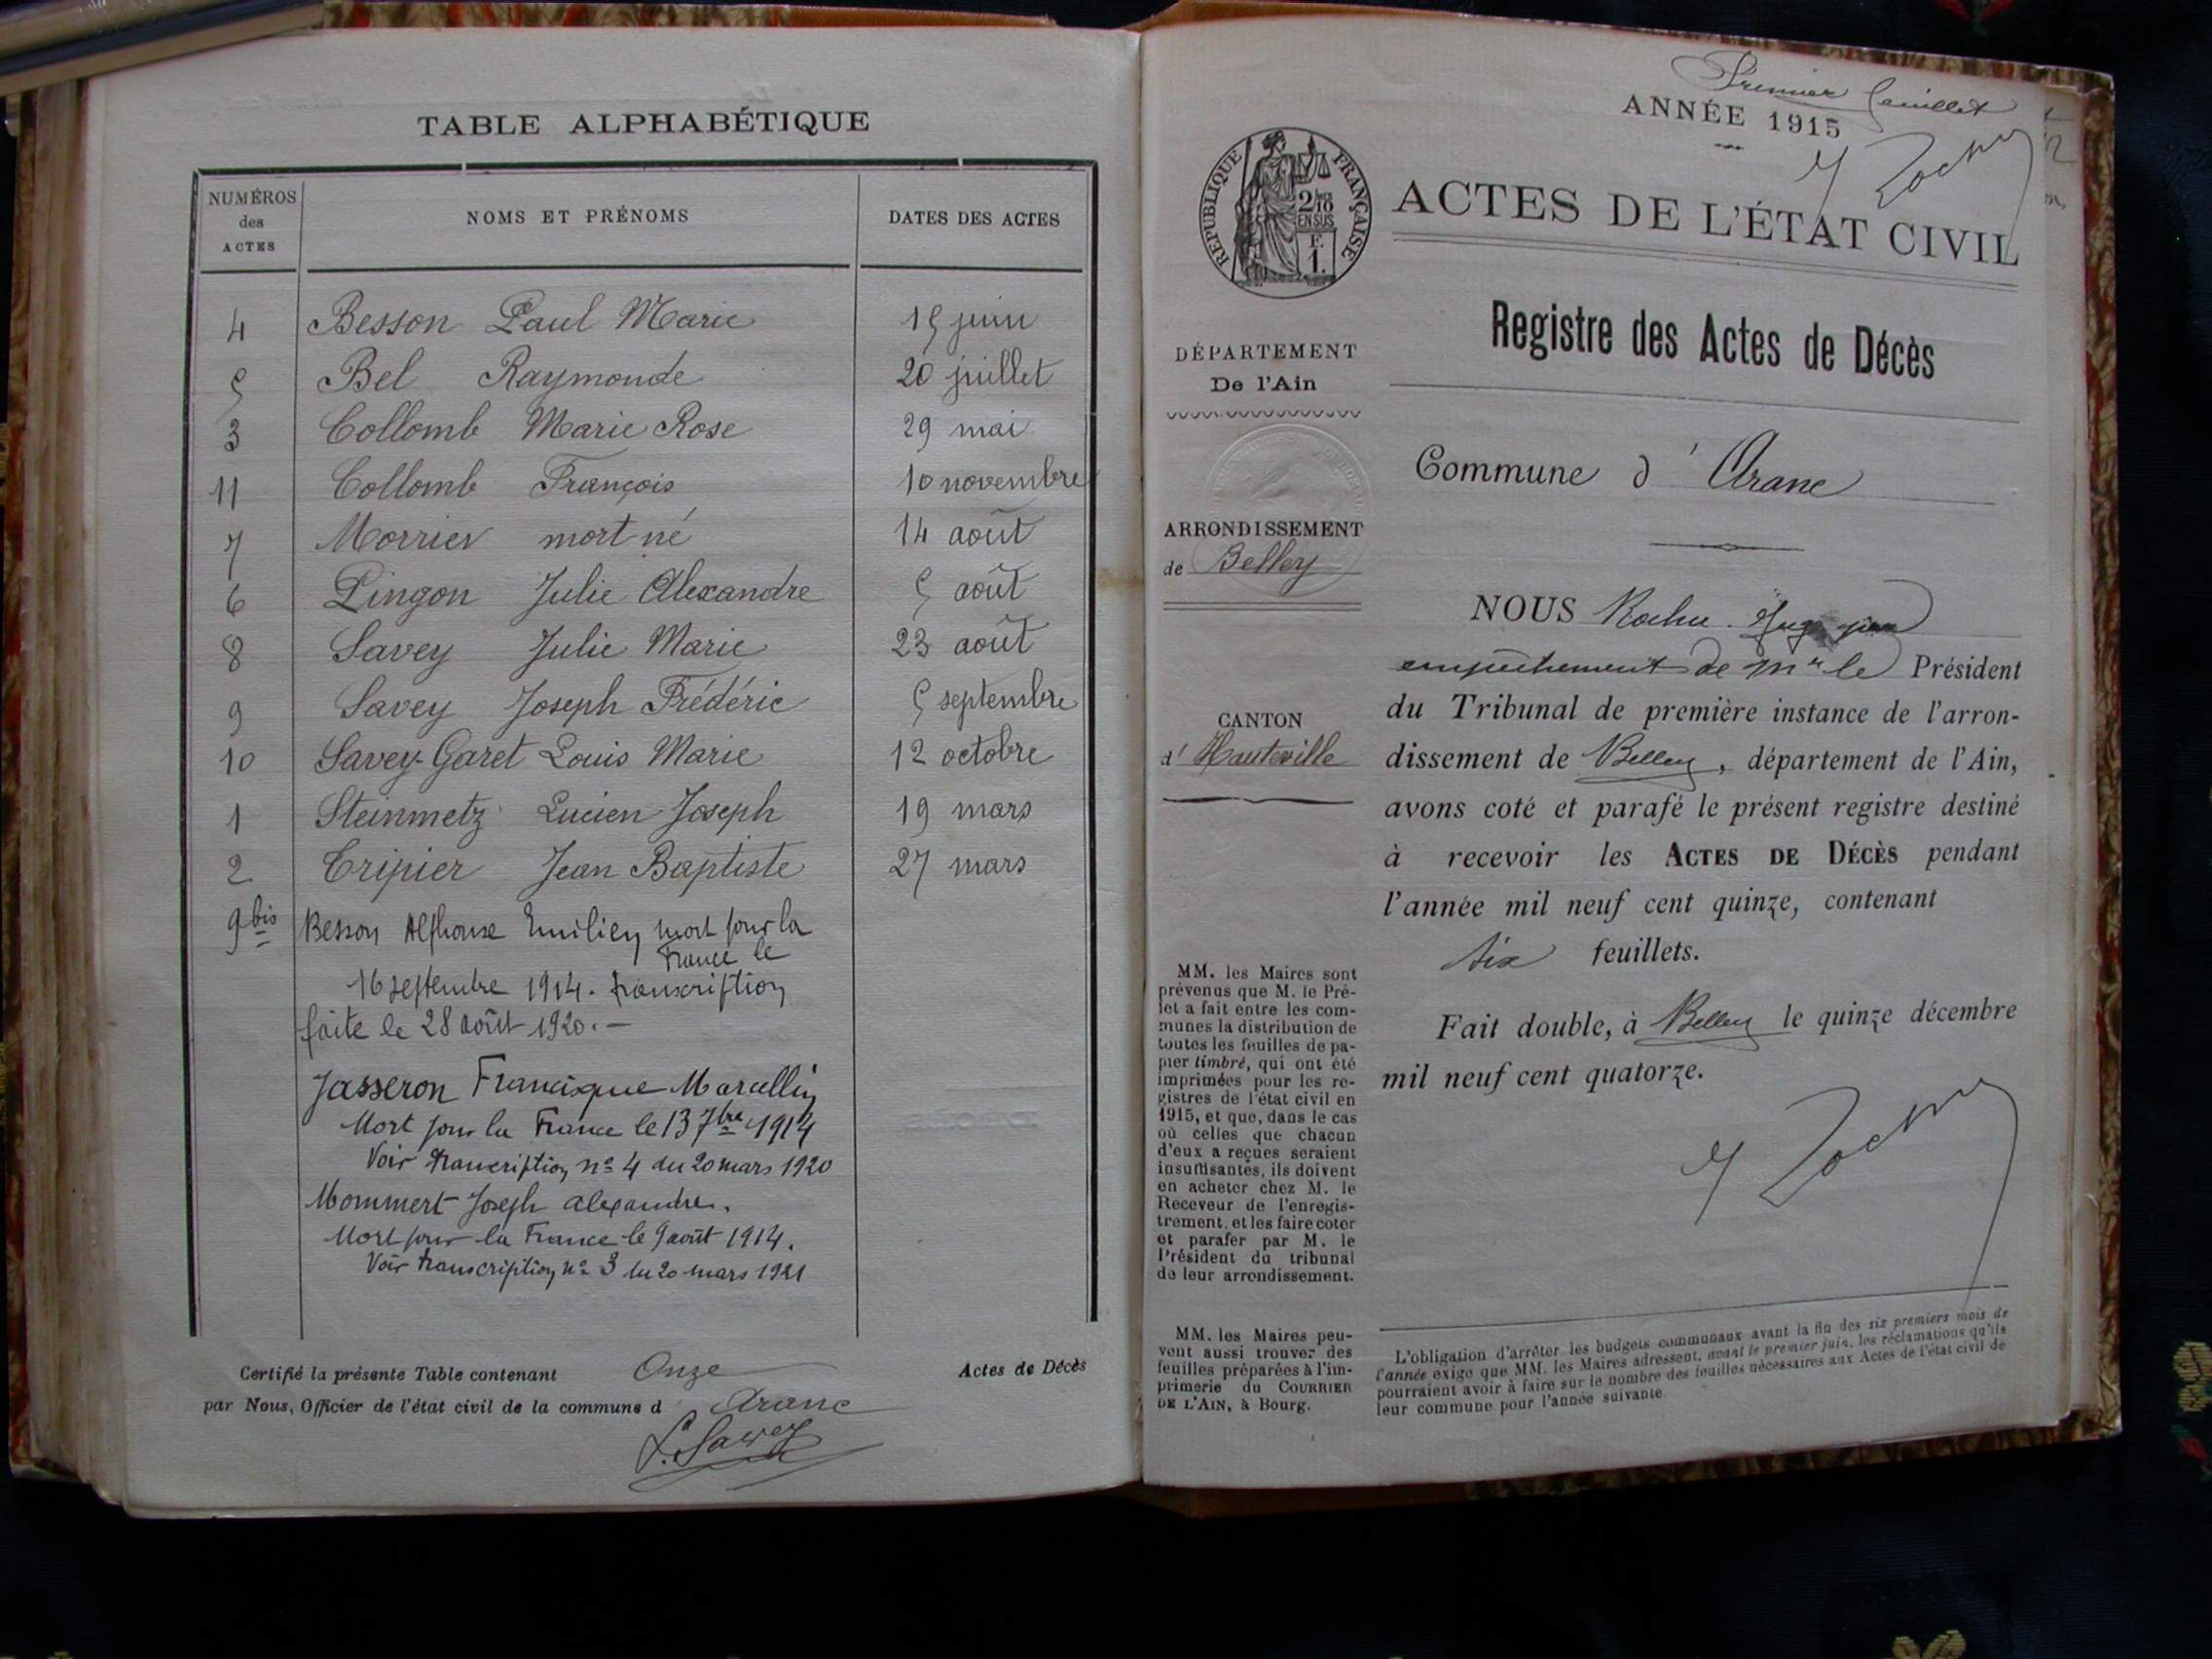 TABLE ALPHABÉTIQUE
NUMÉROS des ACTES
NOMS ET PRÉNOMS
DATES DES ACTES
4 Besson Paul Marie 15 juin
5 Bel Raymonde 20 juillet
3 Collomb Marie Rose 29 mai
11 Collomb François 10 novembre
7 Morrier mort-né 14 août
6 Pingon Julie Alexandre 5 août
8 Savey Julie Marie 23 août
9 Savey Joseph Frédéric 5 septembre
10 Savey-Garet Louis Marie 12 octobre
1 Steinmetz Lucien Joseph 19 mars
2 Tripier Jean Baptiste 27 mars
9 bis Besson Alphonse Emilien mort pour la
France le
16 septembre 1914. transcription
faite le 28 août 1920.—
Jasseron Francisque Marcellin
Mort pour la France le 13 7bre 1914
Voir transcription n° 4 du 20 mars 1920
Mommert Joseph Alexandre.
Mort pour la France le 9 août 1914.
Voir transcription n° 3 du 20 mars 1921
Certifié la présente Table contenant Onze Actes de Décès
par Nous, Officier de l'état civil de la commune d Aranc
L. Savey
Premier feuillet
ANNÉE 1915
RÉPUBLIQUE FRANÇAISE
2/10
EN SUS
F.
1.
ACTES DE L'ÉTAT CIVIL
Registre des Actes de Décès
DÉPARTEMENT
De l'Ain
Commune d'Aranc
ARRONDISSEMENT
de Belley
CANTON
d'Hauteville
NOUS Juge pour
empêchement de Mr le Président
du Tribunal de première instance de l'arron-
dissement de Belley, département de l'Ain,
avons coté et parafé le présent registre destiné
à recevoir les ACTES DE DÉCÈS pendant
l'année mil neuf cent quinze, contenant
six feuillets.
Fait double, à Belley le quinze décembre
mil neuf cent quatorze.
MM. les Maires sont
prévenus que M. le Pré-
fet a fait entre les com-
munes la distribution de
toutes les feuilles de pa-
pier timbré, qui ont été
imprimées pour les re-
gistres de l'état civil en
1915, et que, dans le cas
où celles que chacun
d'eux a reçues seraient
insuffisantes, ils doivent
en acheter chez M. le
Receveur de l'enregis-
trement, et les faire coter
et parafer par M. le
Président du tribunal
de leur arrondissement.
MM. les Maires peu-
vent aussi trouver des
feuilles préparées à l'im-
primerie du COURRIER
DE L'AIN, à Bourg.
L'obligation d'arrêter les budgets communaux avant la fin des six premiers mois de
l'année exige que MM. les Maires adressent, avant le premier juin, les réclamations qu'ils
pourraient avoir à faire sur le nombre des feuilles nécessaires aux Actes de l'état civil de
leur commune pour l'année suivante.